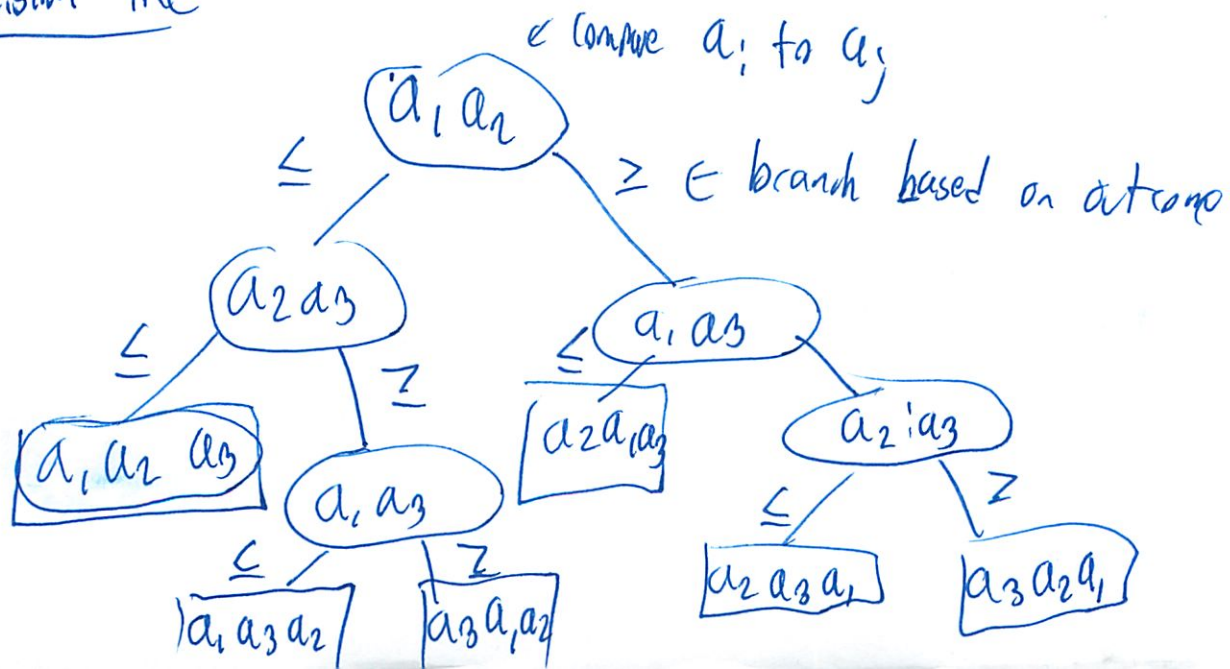 Tree
← Compare aᵢ to aⱼ
a₁ a₂
≤
≥ ← branch based on outcome
a₂ a₃
a₁ a₃
≤
≥
≤
a₁ a₂ a₃
a₂ a₁ a₃
a₂ : a₃
a₁ a₃
≤
≥
≤
≥
a₁ a₃ a₂
a₃ a₁ a₂
a₂ a₃ a₁
a₃ a₂ a₁